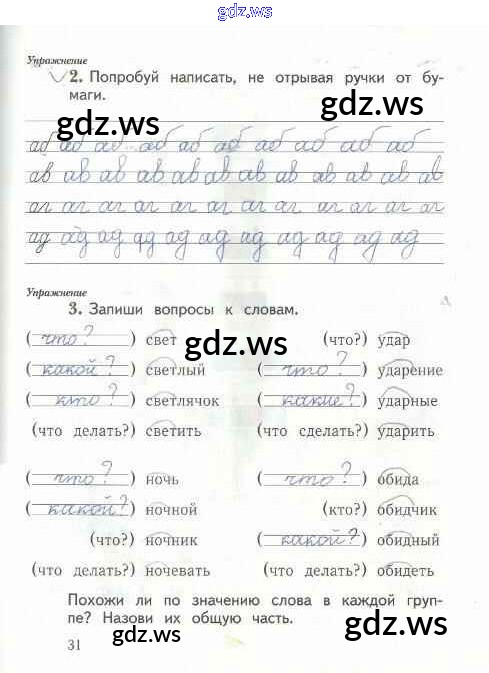 gdz.ws
Упражнение
2. Попробуй написать, не отрывая ручки от бу-
маги.
gdz.ws
gdz.ws
аб аб аб аб аб аб аб аб аб аб
ав ав ав ав ав ав ав ав ав ав ав
аг аг аг аг аг аг аг аг аг аг аг
ад ад ад ад ад ад ад ад ад ад
Упражнение
3. Запиши вопросы к словам.
(что?) свет (что?) удар
gdz.ws
(какой?) светлый (что?) ударение
(кто?) светлячок (какие?) ударные
(что делать?) светить (что сделать?) ударить
(что?) ночь (что?) обида
(какой?) ночной (кто?) обидчик
gdz.ws
(что?) ночник (какой?) обидный
(что делать?) ночевать (что делать?) обидеть
Похожи ли по значению слова в каждой груп-
пе? Назови их общую часть.
gdz.ws
gdz.ws
31